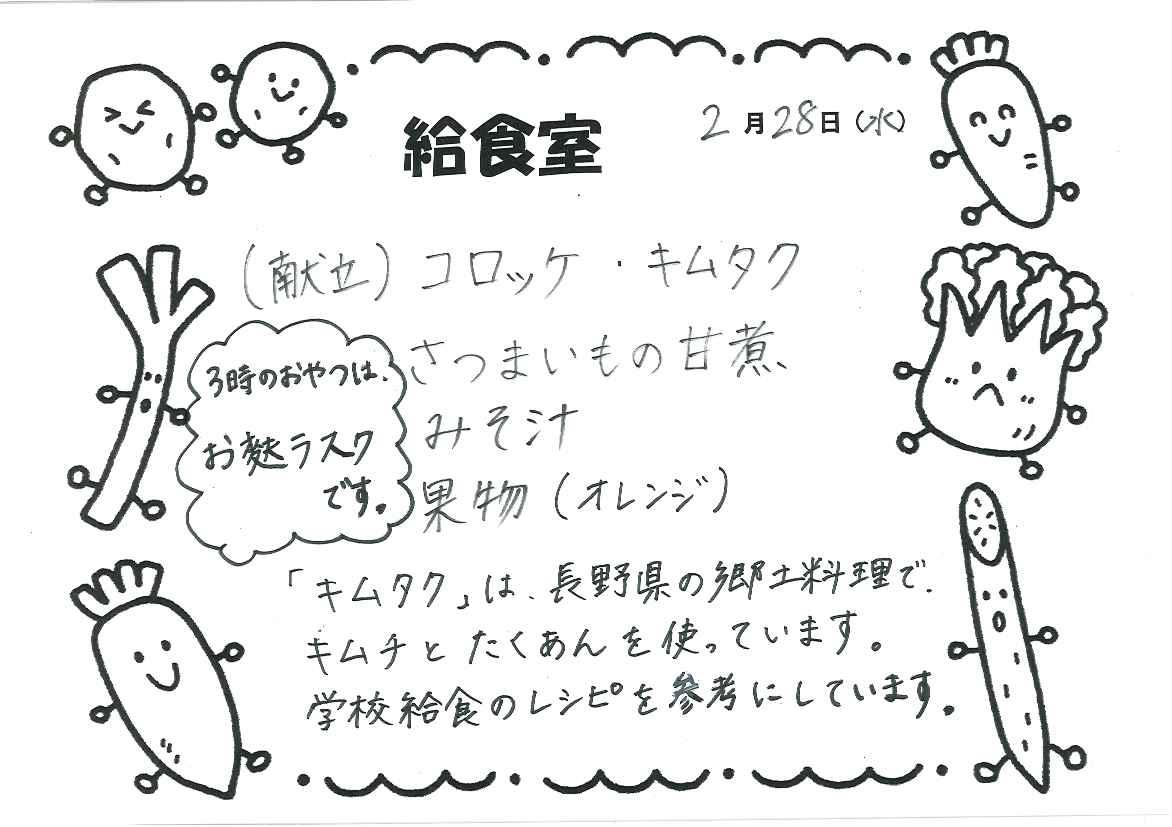 給食室
2月28日(水)
(献立)コロッケ・キムタク
さつまいもの甘煮、
みそ汁
果物(オレンジ)
3時のおやつは、
お麩ラスク
です。
「キムタク」は、長野県の郷土料理で、
キムチとたくあんを使っています。
学校給食のレシピを参考にしています。